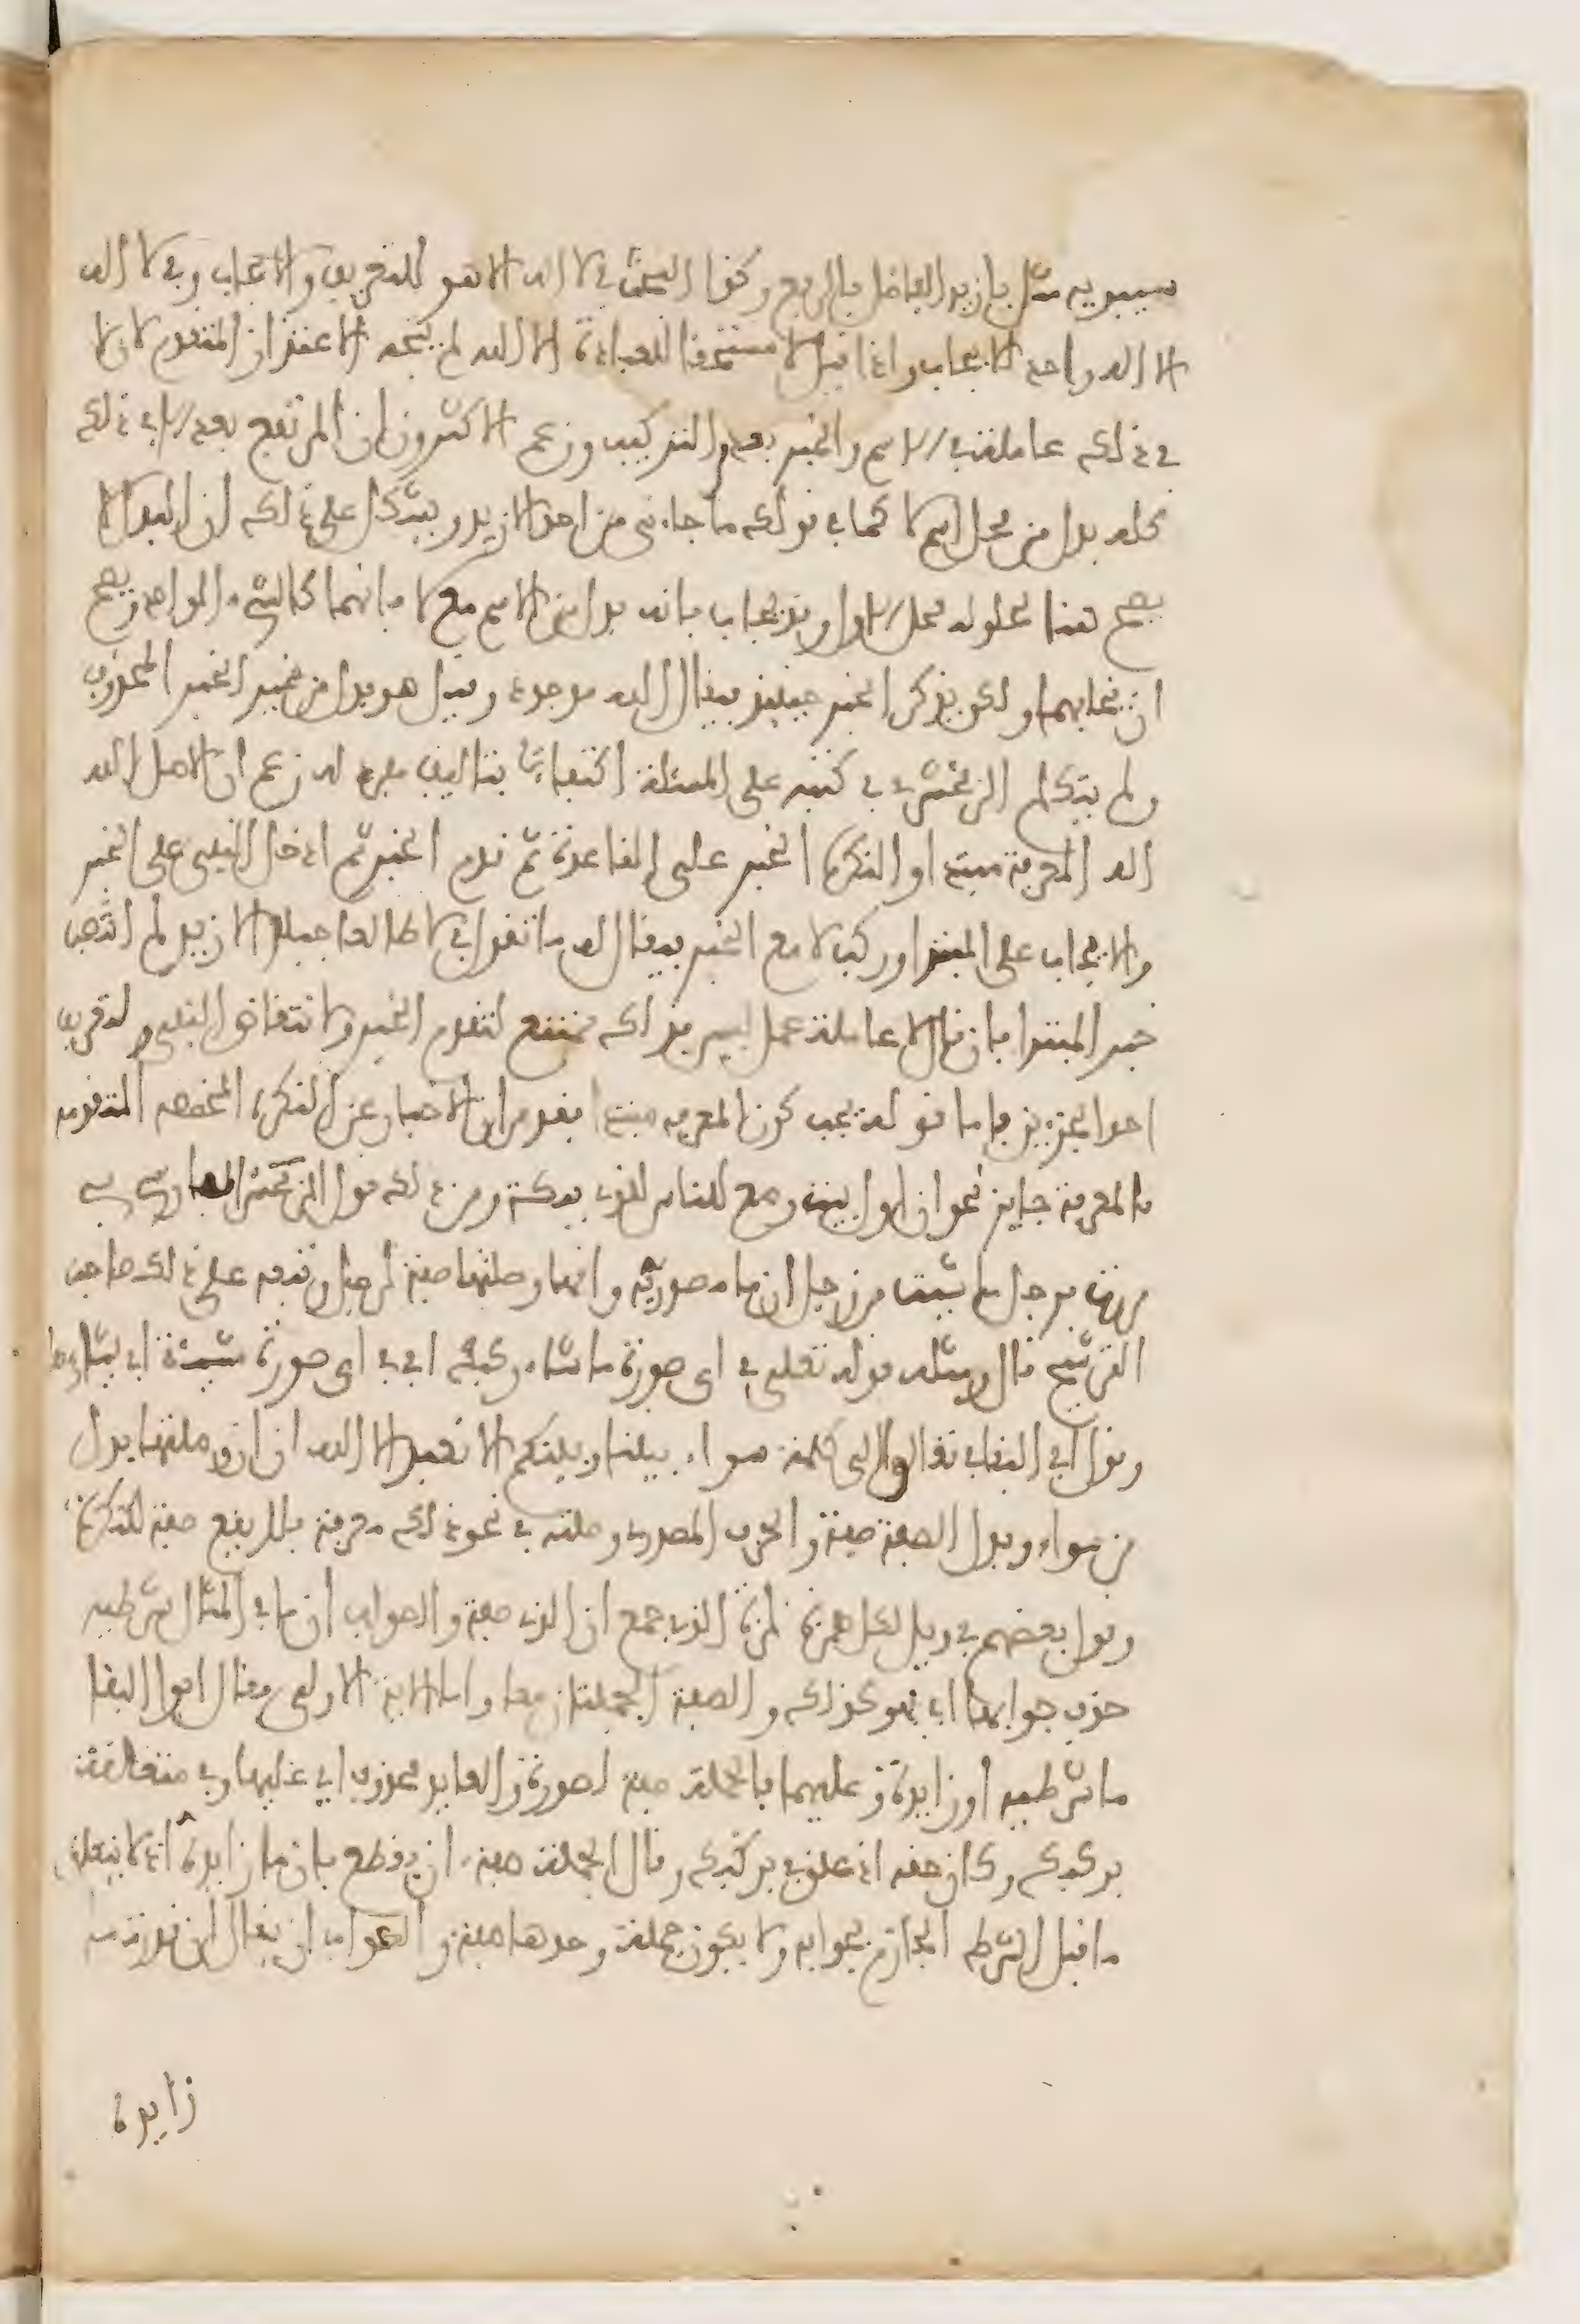 سيبويه مثل يا زيد الفاضل بالرفع وكذا البحث في لا اله الا هو للتعريف والايجاب وفي لا اله
الا اله واحد للايجاب واذا قيل لا مستحقا للعبادة الا الله لم يتجه الاعتذار المتقدم لان لا
في ذلك عاملة في الاسم والخبر لعدم التركيب وزعم الاكثرون ان المرتفع بعد الا في ذلك
كله بدل من محل اسم لا كما في قولك ما جاءني من احد الا زيد ويشكل على ذلك ان البدل لا
يصح هنا لحلوله محل الاول وقد يجاب بانه بدل من الاسم مع لا فانهما كالشيء الواحد ويصح
ان يخلفهما ولكن يذكر الخبر حينئذ فيقال الله موجود وقيل هو بدل من ضمير الخبر المحذوف
ولم يتكلم الزمخشري في كتبه على المسئلة اكتفاء بتاليف مفرد له زعم ان الاصل الله
اله المعرفة مبتدا والنكرة الخبر على القاعدة ثم قدم الخبر ثم ادخل النفي على الخبر
والايجاب على المبتدا وركبت لا مع الخبر فيقال له ما تقول في لا طالعا جبلا الا زيد لم انتصب
خبر المبتدا فان قال لا عاملة عمل ليس فذلك ممتنع لتقدم الخبر ولانتقاض النفي ولتعريف
احد الجزءين فاما قوله يجب كون المعرفة مبتدا فقد مر ان الاخبار عن النكرة المخصصة المتقدمه
بالمعرفة جايز نحو ان اول بيت وضع للناس للذي ببكة ومن ذلك قول الفارسي في
مررت برجل ما شئت من رجل ان ما مصدرية وانها وصلتها صفة لرجل وتبعه على ذلك صاحب
الترشيح قال ومثله قوله تعلى في اى صورة ما شاء ركبك اي في اى صورة مشيئة اي يشاءها
وقول ابي البقاء في تعالوا الى كلمة سواء بيننا وبينكم الا نعبد الا الله ان ان وصلتها بدل
من سواء وبدل الصفة صفة والحرف المصدري وصلته في نحو ذلك معرفة فلا يقع صفة للنكرة
وقول بعضهم في ويل لكل همزة لمزة الذي جمع ان الذي صفة والصواب ان ما في المثال شرطيه
حذف جوابها اي فهو كذلك والصفة الجملتان معا واما الاية الاولى فقال ابوا البقا
ما شرطيه او زايدة وعليهما فالجملة صفة لصورة والعايد محذوف اي عليها وفي متعلقة
بركبك وكان حقه اذ علق في بركبك وقال الجملة صفة ان يقطع بان ما زايدة اذ لا يتعلق
ما قبل الشرط الجازم بجوابه ولا يكون جملة وحدها صفة والصواب ان يقال ان قدرت ما
زايدة